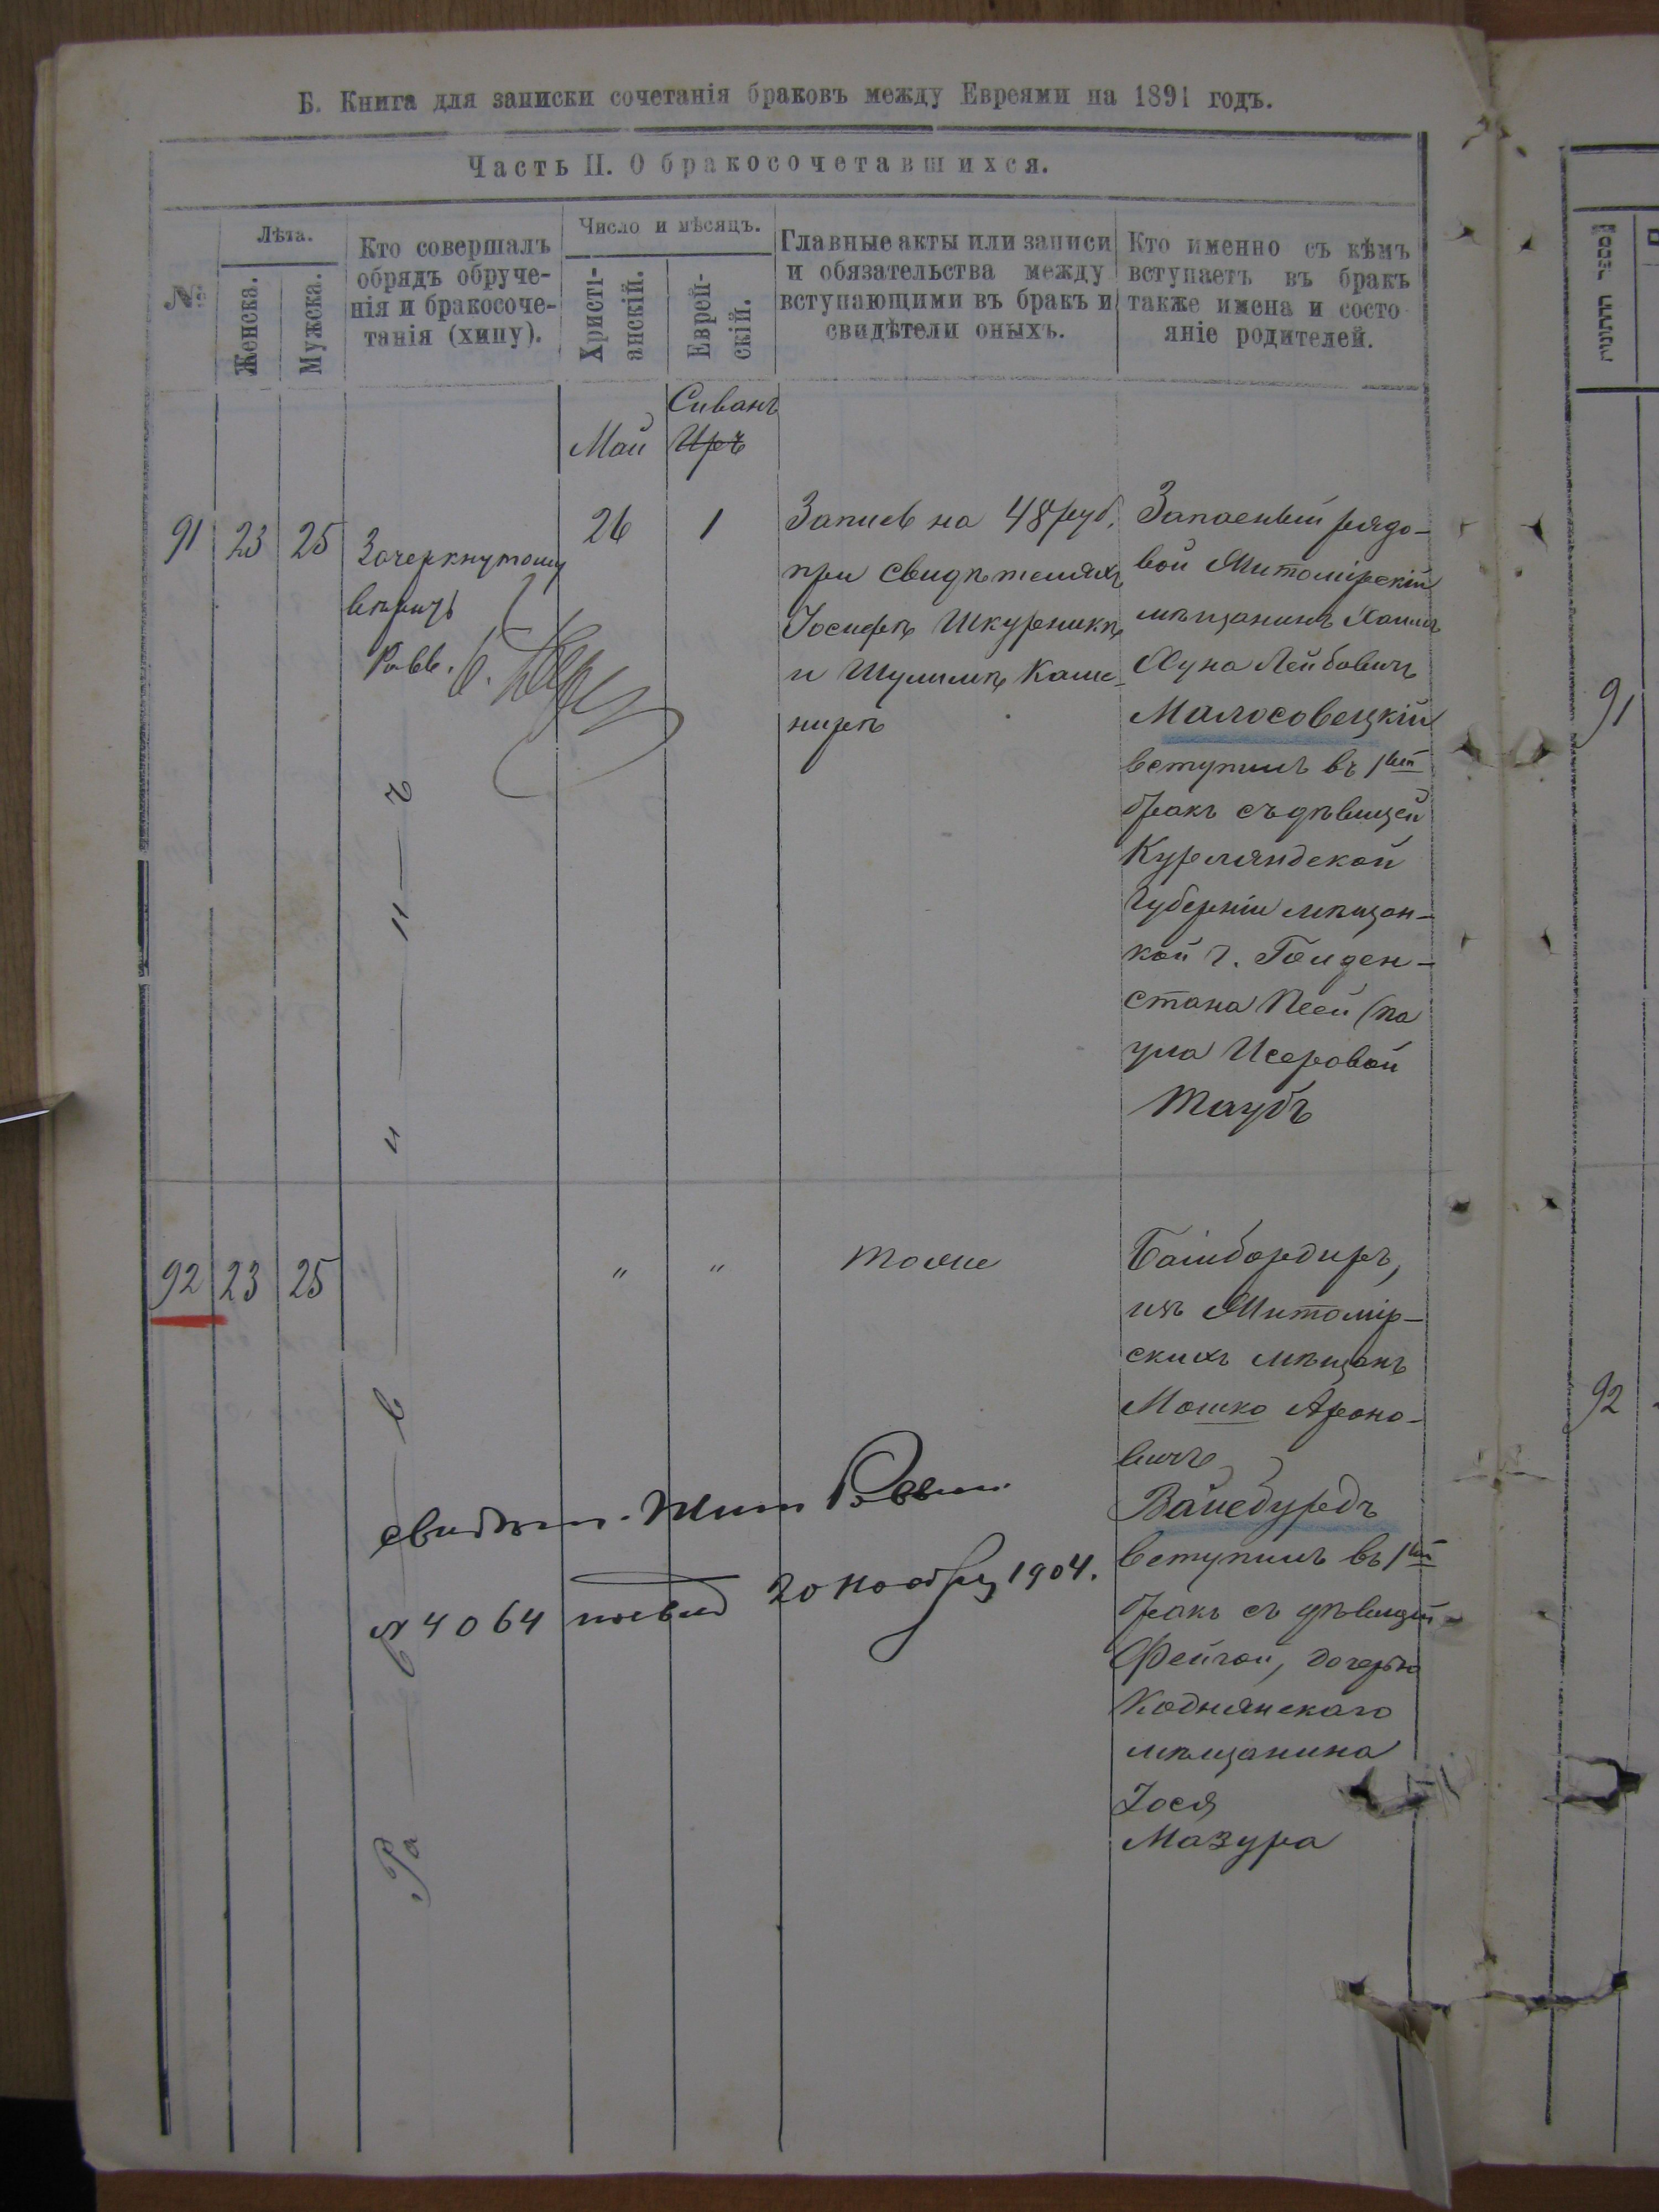 Б. Книга для записки сочетанія браковъ между Евреями на 1891 годъ.
Часть II. О бракосочетавшихся.
№
Лѣта.
Женска.
Мужска.
Кто совершалъ
обрядъ обруче-
нія и бракосоче-
танія (хипу).
Число и мѣсяцъ.
Христі-
анскій.
Еврей-
скій.
Главные акты или записи
и обязательства между
вступающими въ бракъ и
свидѣтели оныхъ.
Кто именно съ кѣмъ
вступаетъ въ бракъ
также имена и состо
яніе родителей.
Май
Сиванъ
Иръ
91 23 25
Зачеркнутому
вѣрить
Равв.
26 1
Запись на 48 руб.
при свидѣтеляхъ
Іосифѣ Шкурникѣ
и Шулимѣ Каме-
нирѣ
Запасный рядо-
вой Житомірскій
мѣщанинъ Хаимъ
Хуна Лейбовичъ
Малосовецкій
вступилъ въ 1ый
бракъ съ дѣвицей
Курляндской
Губерніи мѣщан-
кой г. Гольден-
стана Песей (па
ула Исеровой
Таубъ
92 23 25
" " тоже
Бомбордиръ,
изъ Житомір-
скихъ мѣщанъ
Мошко Ароно-
вичъ
Вайсбурдъ
вступилъ въ 1ый
бракъ съ дѣвицей
Фейгой, дочерью
Коднянскаго
мѣщанина
Іося
Мазура
Ра в в и н ъ
свидѣт. Жит Раввин.
№ 4064
20 ноября 1904.
91
92